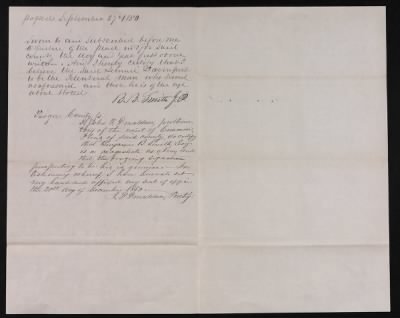 payable September 27th 1850
Sworn to and subscribed before me
a Justice of the peace in & for said
county the day and year first above
written. And I hereby certify that I
believe the said Samuel
to be the Identical man who
aforesaid and that he is of the age
above stated.
B. B. Smith J.P.
Tioga County Ss
I John F. Donaldson prothono-
tary of the court of Common
Pleas of said county do certify
that Benjamin B Smith Esq.
is a magistrate as above and
that the foregoing signature
purporting to be his is genuine. In
testimony whereof I have hereunto set
my hand and affixed my seal of office
the 20th day of December 1850.
J. F. Donaldson, Prothy.